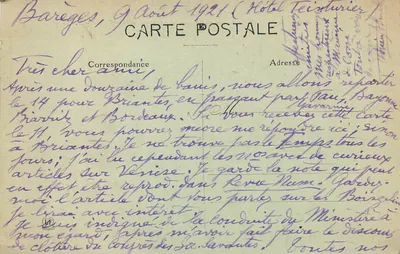 Barèges, 9 Août 1921 (Hôtel Teinturier)
CARTE POSTALE
Correspondance
Adresse
Très cher ami,
Après une douzaine de bains, nous allons repartir
le 14 pour Briantes, en passant par Pau, Bayonne
Biarritz et Bordeaux. Si vous recevez cette carte
le 11, vous pouvez encore me répondre ici, sinon
à Briantes. Je ne trouve pas le temps tous les
jours; j'ai lu cependant les nos avec de curieux
articles sur Venise. Je garde la note qui peut
en effet être reprod. dans Revue Num. Gardez-
moi l'article dont vous parlez sur les Boisgelin
je lirai avec intérêt.
Je suis indigné de la conduite du Ministère à
mon égard, après m'avoir fait faire le discours
de clôture du Congrès des Soc. Savantes.
Toutes nos